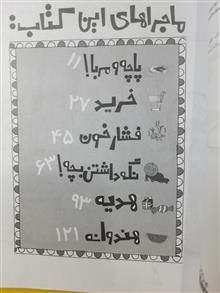 ماجراهای این کتاب:
پاچه و مربا! ۱۱
خرید ۲۷
فشار خون ۴۵
نگه داشتن بچه! ۶۳
هدیه ۹۳
هندوانه ۱۲۱